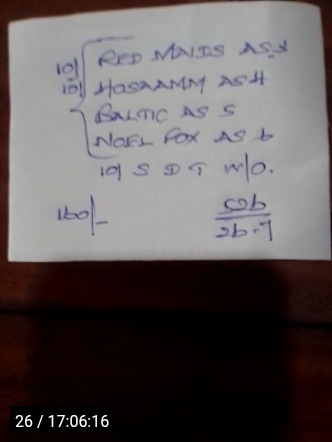 10/ RED MAIDS AS 3
10/ HOSAAMM AS 4
BALTIC AS 5
NOEL FOX AS 6
10/ S D T W/O.
160/-
526
26.7
26 / 17:06:16